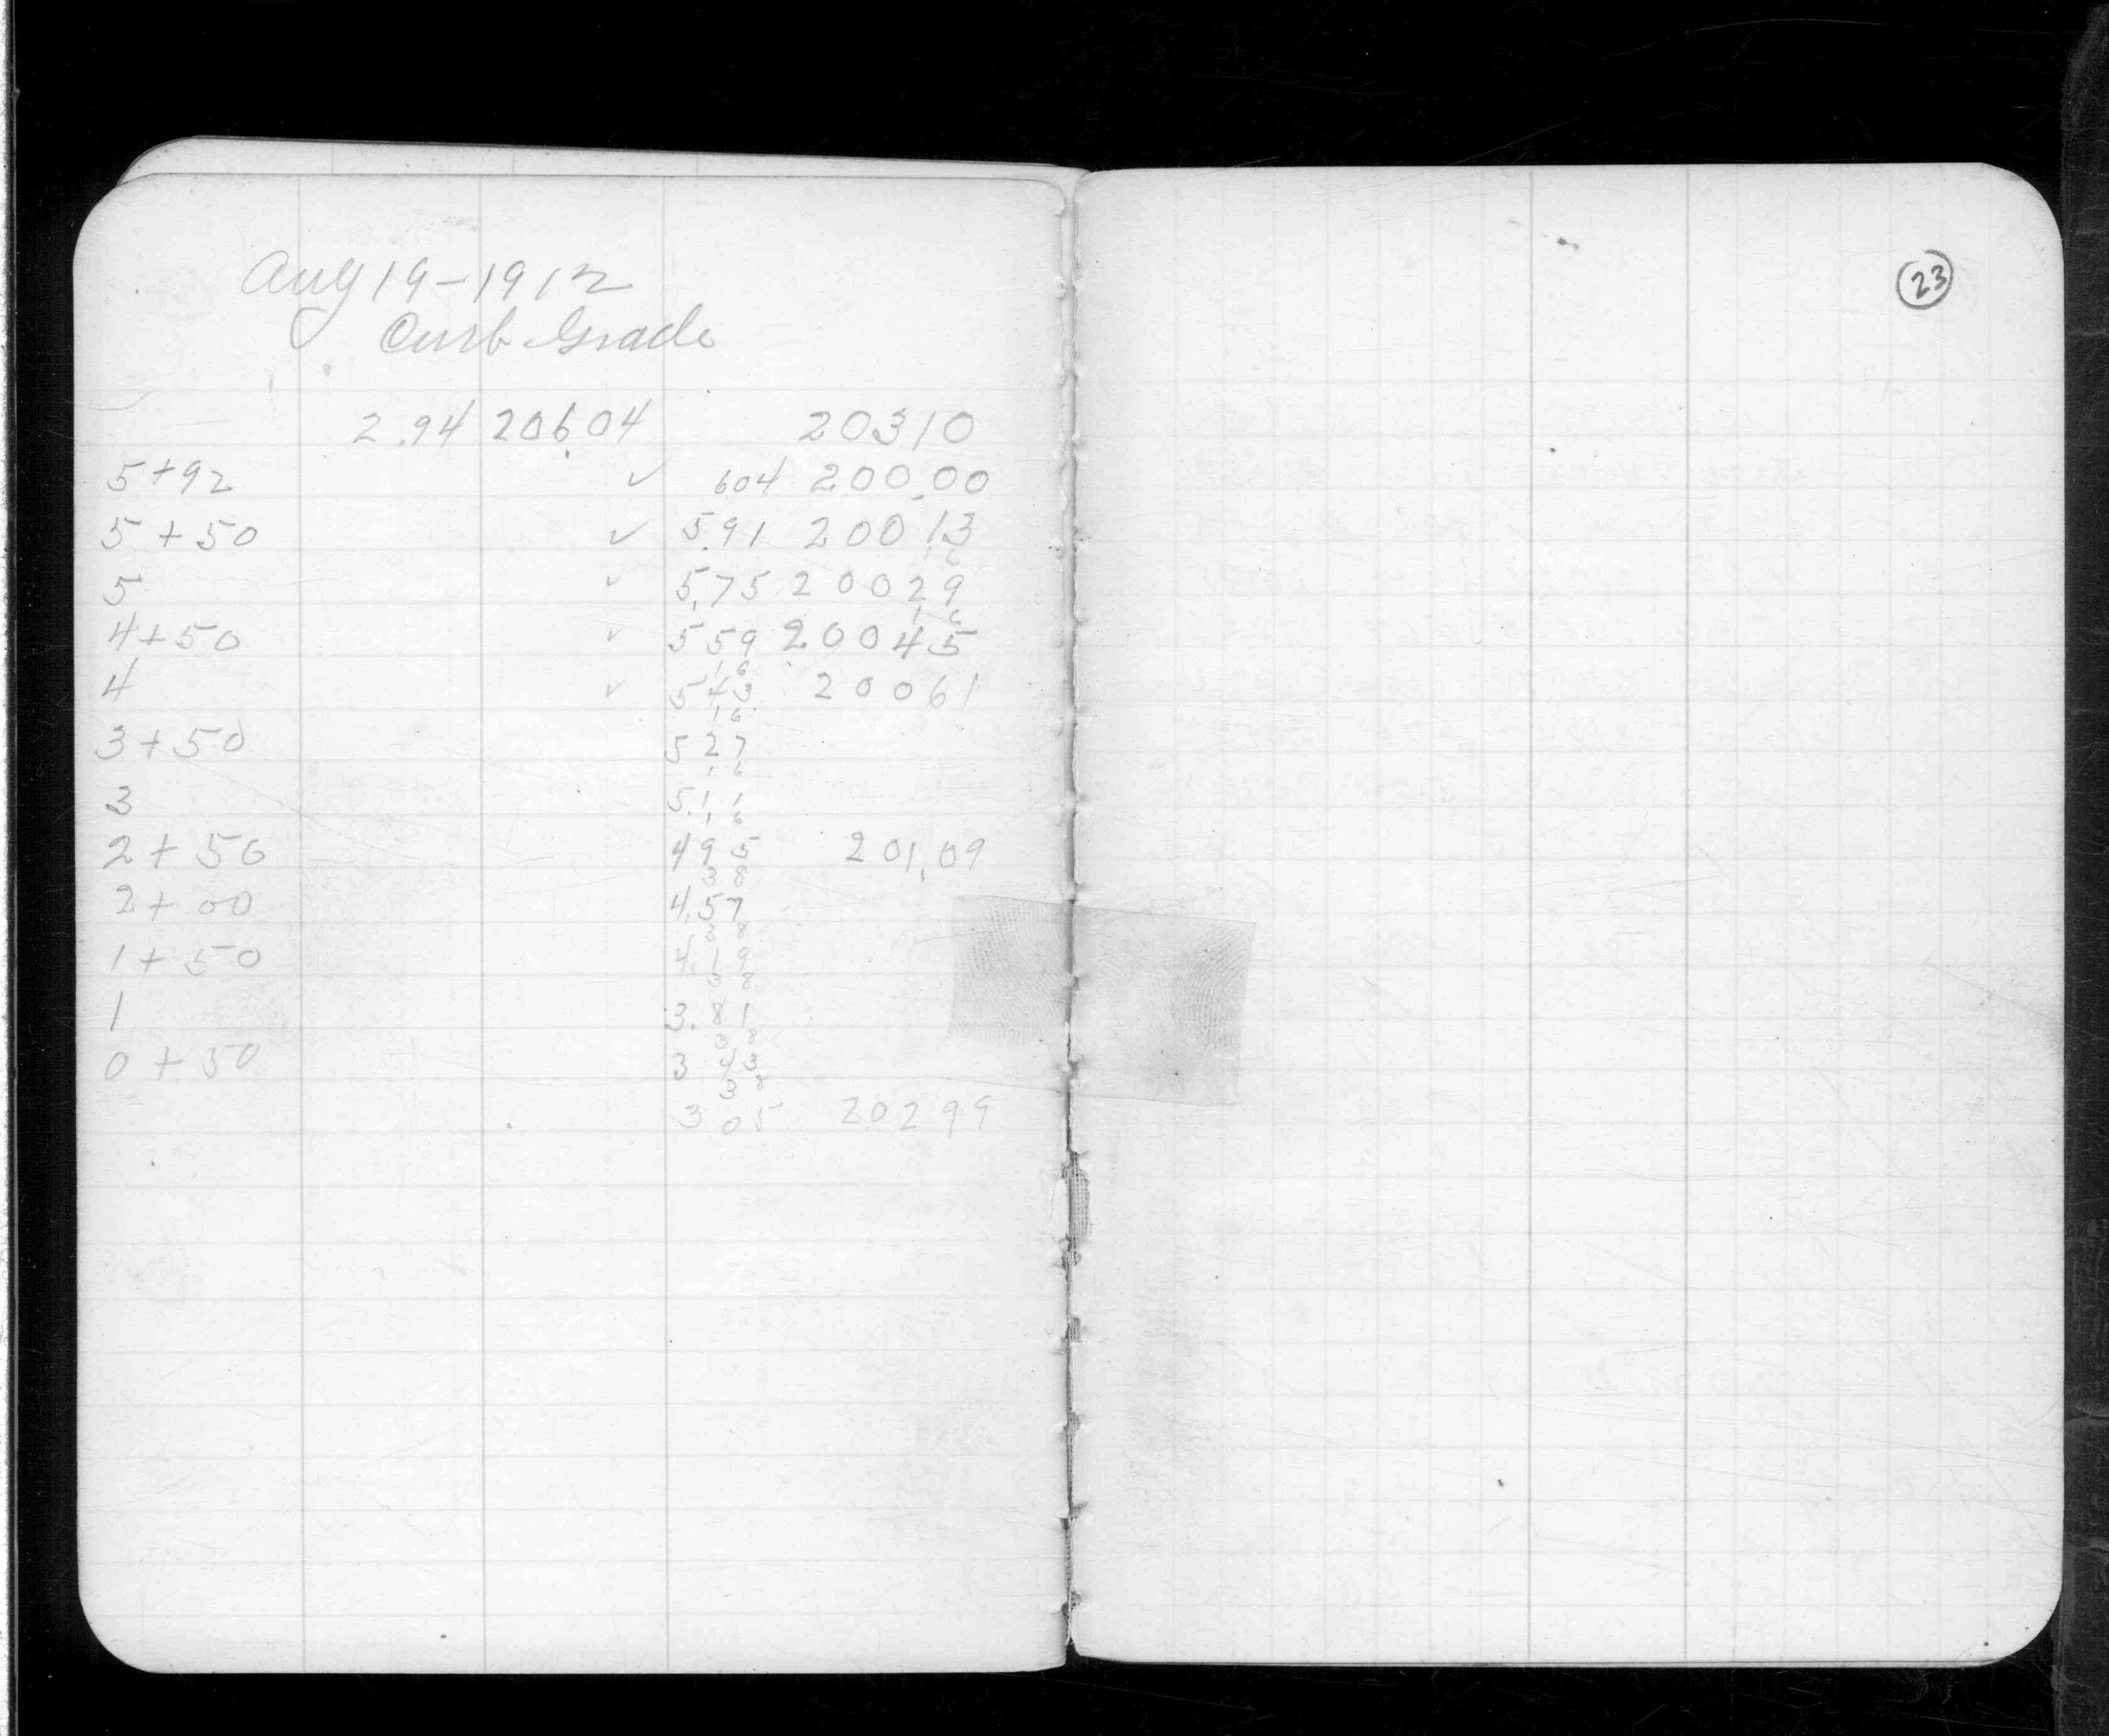 Aug 19-1912
Curb Grade
2.94 206.04 20310
5+92 ✓ 604 200.00
5+50 ✓ 5.91 200 13
16
5 ✓ 5.75 200 29
16
4+50 ✓ 5 59 200 45
16
4 ✓ 5 43 200 61
16
3+50 5 27
16
3 5.11
16
2+50 4 95 201.09
38
2+00 4.57
38
1+50 4.19
38
1 3.81
38
0+50 3 43
38
3 05 202 99
23